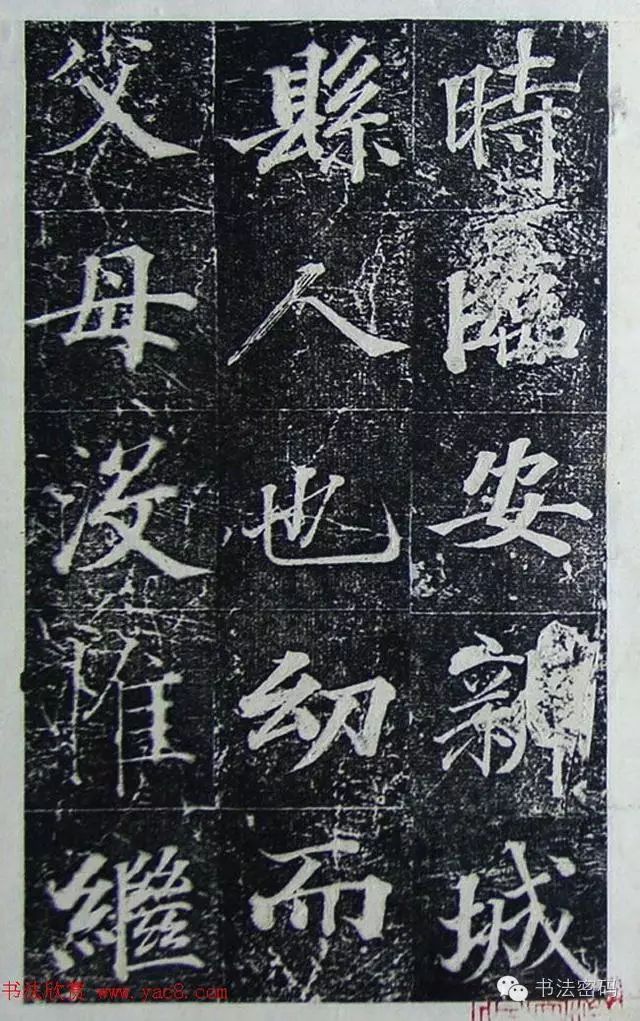 時臨安新城
縣人也幼而
父母没惟繼
书法欣赏 www.yac8.com
书法密码